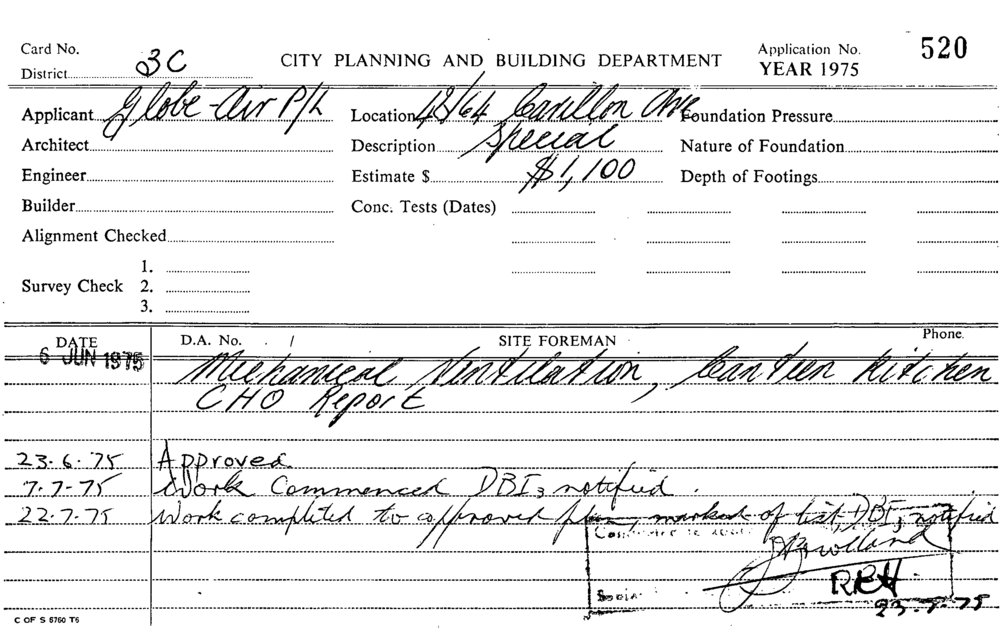 Card No.
District 3C
CITY PLANNING AND BUILDING DEPARTMENT
Application No. 520
YEAR 1975
Applicant Globe-Air P/L Location 48/64 Carillon Ave Foundation Pressure
Architect Description Special Nature of Foundation
Engineer Estimate $ $1,100 Depth of Footings
Builder Conc. Tests (Dates)
Alignment Checked
1.
Survey Check 2.
3.
DATE D.A. No. SITE FOREMAN Phone
6 JUN 1975
Mechanical Ventilation, Canteen Kitchen
CHO Report
23.6.75 Approved
7-7-75 Work Commenced DBI3 notified.
22.7.75 Work completed to approved plan, marked of list, DBI3 notified
RBH
23-7-75
C OF S 5760 T6